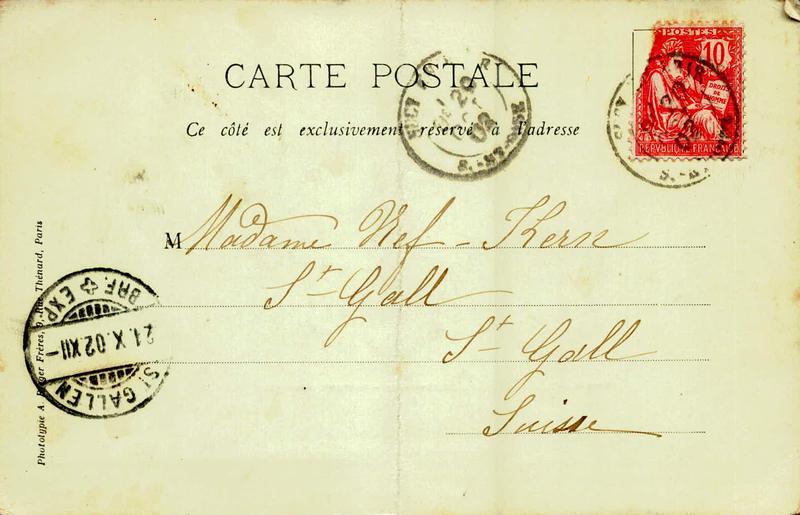 POSTES
10
DROITS
DE
L'HOMME
REPVBLIQVE FRANÇAISE
CARTE POSTALE
Ce côté est exclusivement réservé à l'adresse
M Madame Nef - Kern
St Gall
St Gall
Suisse
BRF. EXP.
21.X.02 XII
ST GALLEN
Photolypie A. Berger Frères, 9, Rue Thénard, Paris